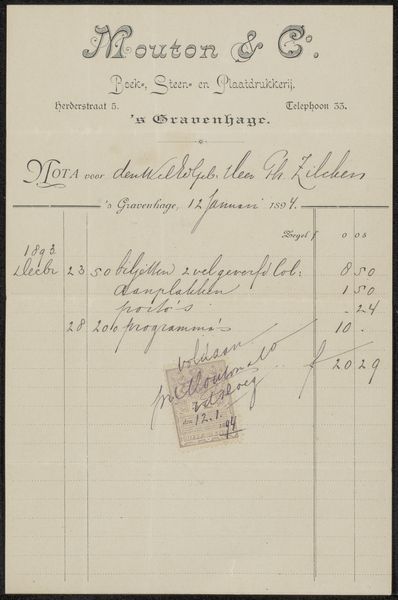 Mouton & Co.
Boek-, Steen- en Plaatdrukkerij.
Herderstraat 5. Telephoon 33.
's Gravenhage.
NOTA voor den WelEdelgeb. Heer Ph. Zilcken
's Gravenhage, 12 Januari 1894.
Zegel f 0 05
1893
Decbr 23 50 biljetten 2 vel 8 50
aanplakken 1 50
porto's - 24
28 200 programma's 10 -
f 20 29
voldaan
den 12.1. 94